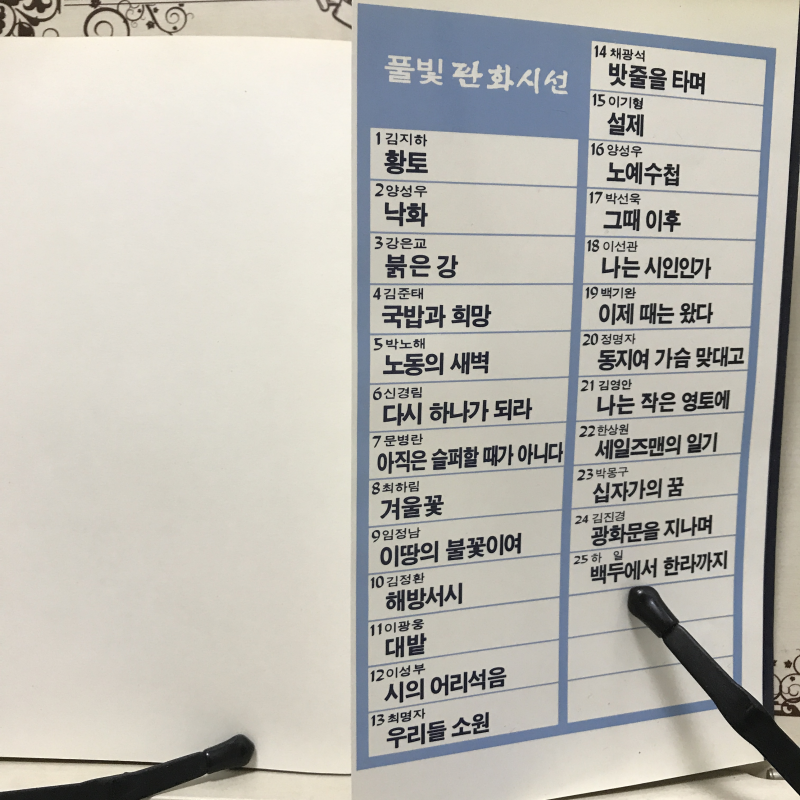 풀빛 판화시선
1 김지하
황토
2 양성우
낙화
3 강은교
붉은 강
4 김준태
국밥과 희망
5 박노해
노동의 새벽
6 신경림
다시 하나가 되라
7 문병란
아직은 슬퍼할 때가 아니다
8 최하림
겨울꽃
9 임정남
이땅의 불꽃이여
10 김정환
해방서시
11 이광웅
대밭
12 이성부
시의 어리석음
13 최명자
우리들 소원
14 채광석
밧줄을 타며
15 이기형
설제
16 양성우
노예수첩
17 박선욱
그때 이후
18 이선관
나는 시인인가
19 백기완
이제 때는 왔다
20 정명자
동지여 가슴 맞대고
21 김영안
나는 작은 영토에
22 한상원
세일즈맨의 일기
23 박몽구
십자가의 꿈
24 김진경
광화문을 지나며
25 하 일
백두에서 한라까지